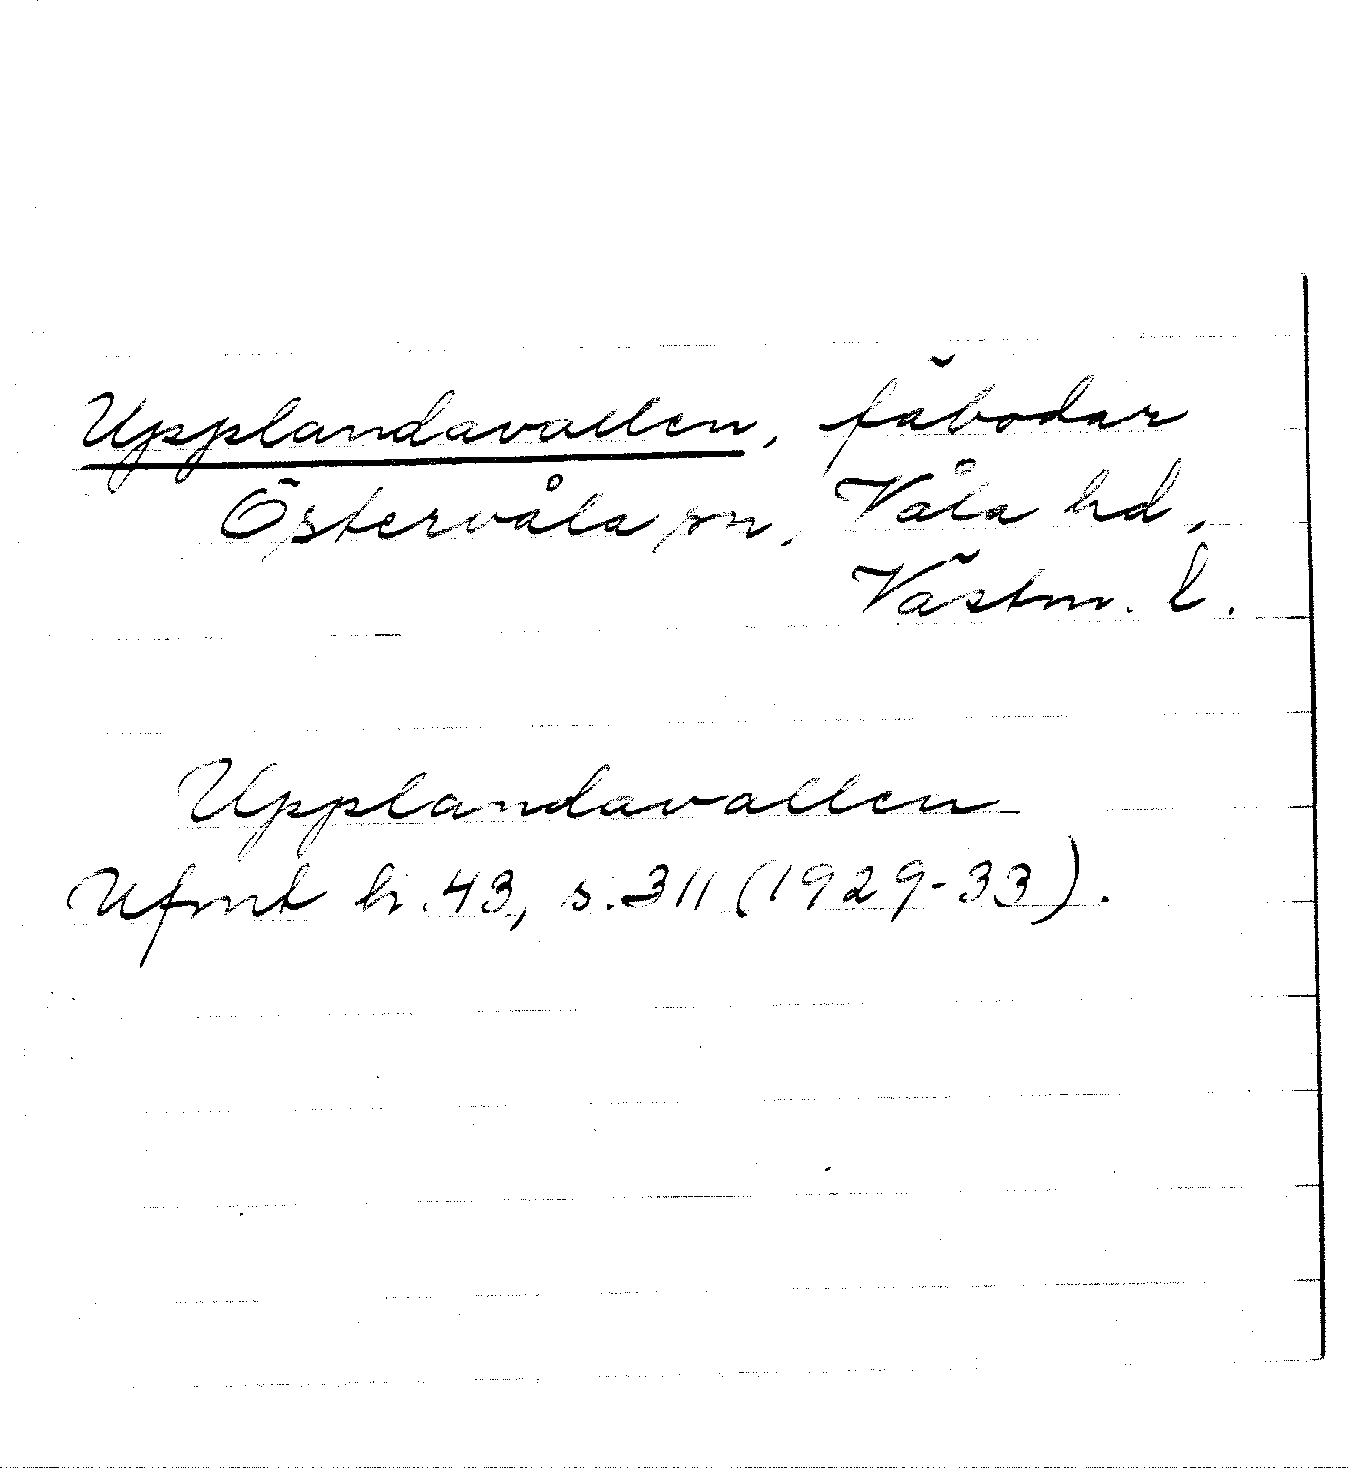 Upplandavallen, fäbodar
Östervåla sn, Våla hd,
Västm. l.
Upplandavallen
Ufmt h. 43, s. 311 (1929-33).